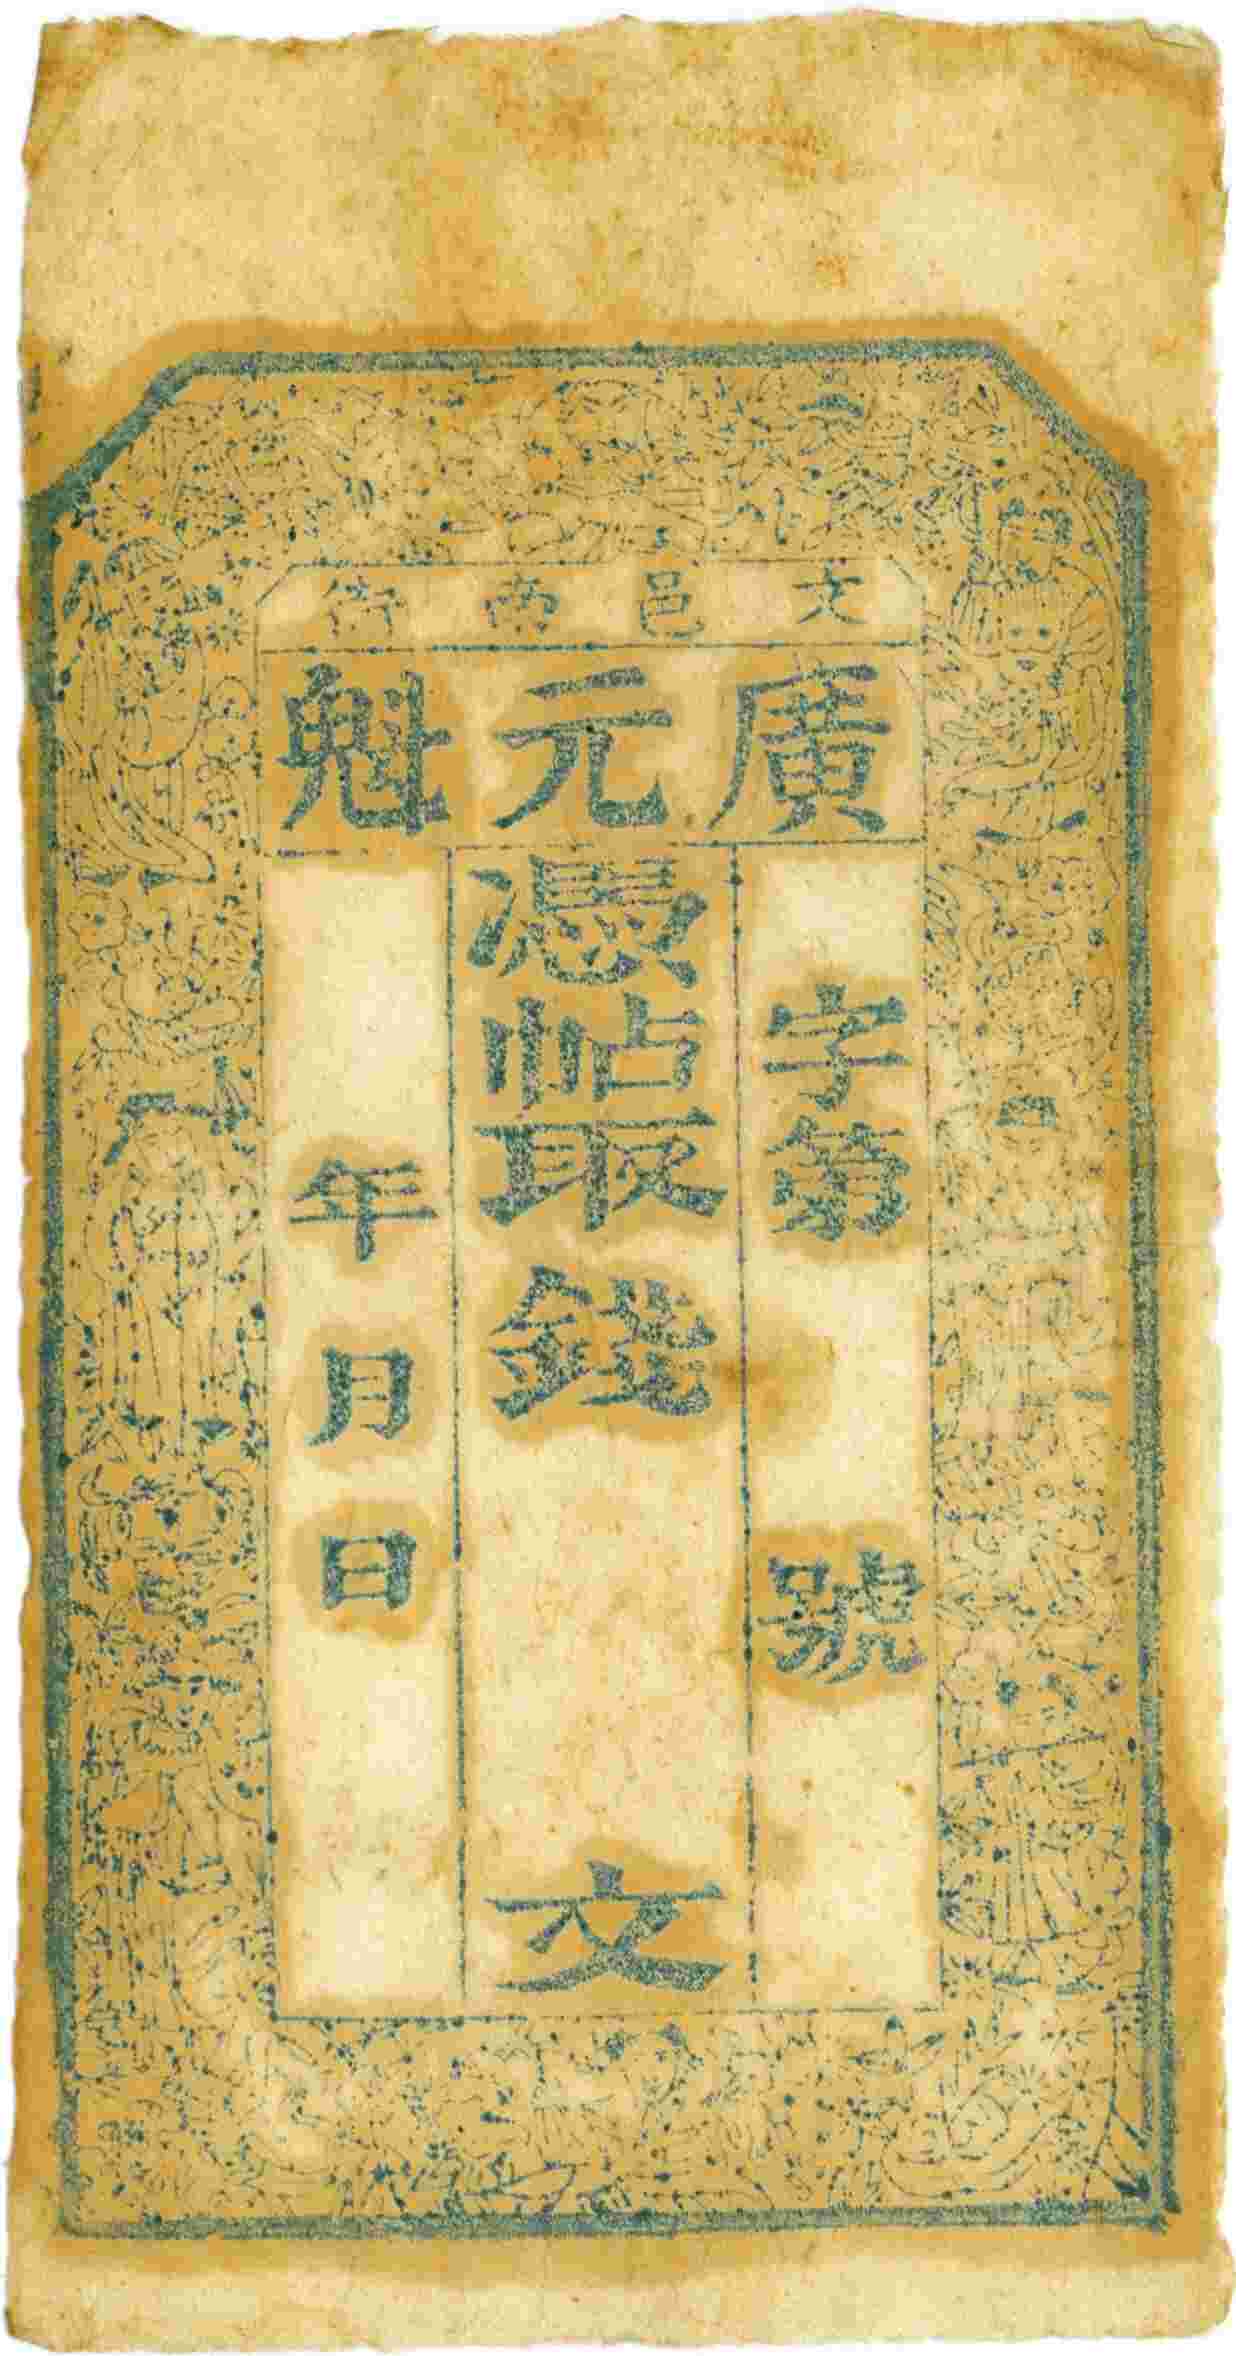 文邑南街
廣元魁
字第　號
憑帖取錢　文
年月日